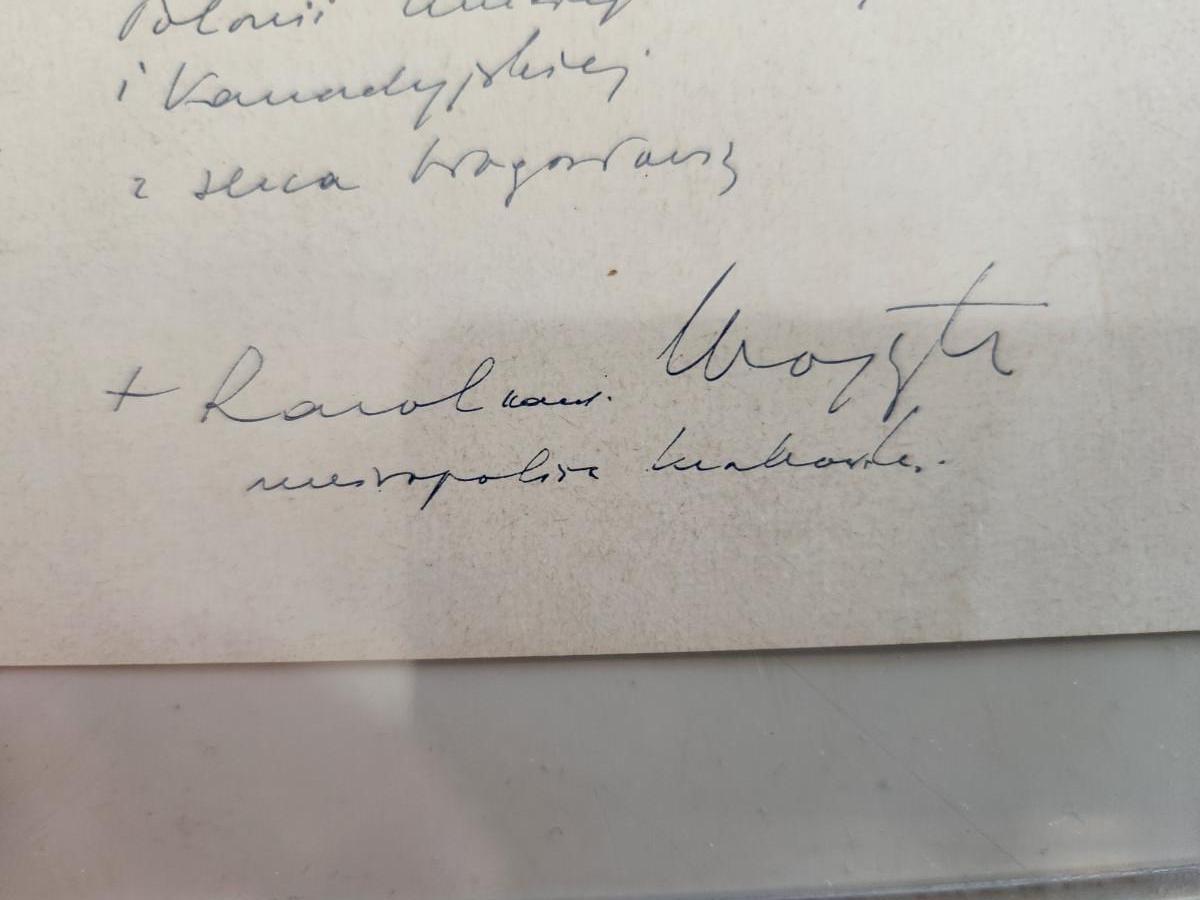 Polonii
i Kanadyjskiej
z serca błogosławię
+ Karol kard. Wojtyła
metropolita krakowski.